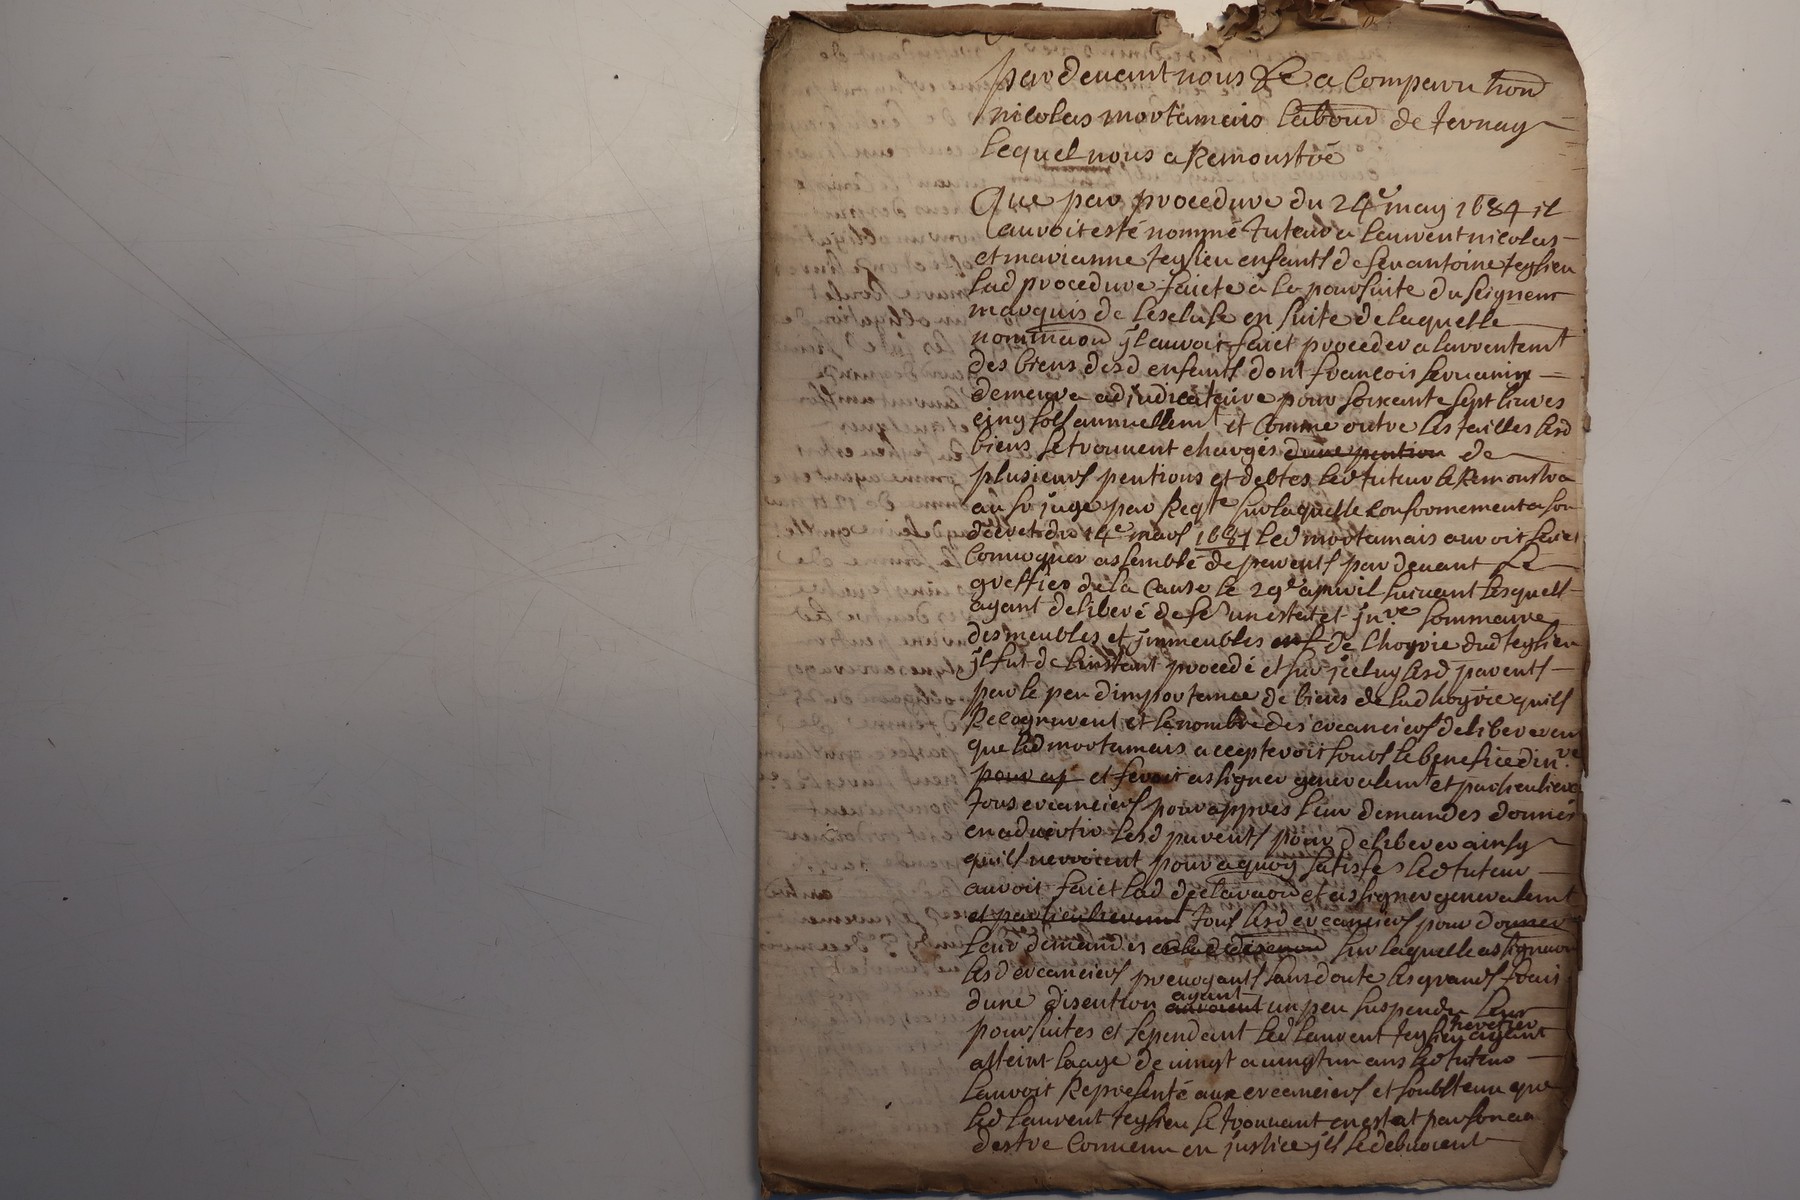 par devant nous &c a Comparu hon
nicolas mortamais labour de ternay
lequel nous a Remoustré
Que par procedure du 24e may 1684 il
auroit esté nommé tuteur a laurent nicolas
et marianne teyssieu enfants de feu antoine teyssieu
lad procedure faicte a la poursuite du seigneur
marquis de lescluse en suite de laquelle
nominaon jl auroit faict proceder a larrentemt
des biens desd enfants dont francois
demeura adjudicataire pour soixante sept livres
cinq sols annuellemt et Comme outre les tailles lesd
biens se trouvent chargés dune pention de
plusieurs pentions et debtes led tuteur le Remoustra
au sr juge par Reqte sur laquelle conformement a son
decret du 14e mars 1687 led mortamais auroit faict
Convoquer assemblé de parents par devant le
greffier de la Cause le 29e apvril suivant lesquels
ayant deliberé de fe un estat et jnve sommaire
des meubles et jmmeubles de lhoyrie dud teyssieu
jl fut de linstant procedé et sur jceluy lesd parents
par le peu dimportance de biens de lad hoyrie quils
Recognurent et le nombre des creanciers delibererent
que led mortamais accepteroit soubs le benefice dinve
pour ap et feroit assigner generalemt et particuliere
tous creanciers pour appres leur demandes donnés
en advertir lesd parents pour deliberer ainsy
quils verroient pour a quoy satisfe led tuteur
auroit faict lad declaraon et assigner generalemt
et particulieremt tous lesd creanciers pour donner
leur demandes sur laquelle assignaon
lesd creanciers prevoyants sans doute les grands frais
dune discution ayant auroient un peu suspendu leur
poursuites et sependant led laurent teyssieu heretier ayant
atteint laage de vingt a vingt un ans led tuteur
lauroit Representé aux creanciers et soubstenu que
led laurent teyssieu se trouvant en estat par son aa
destre Convenu en justice jls se debvoient